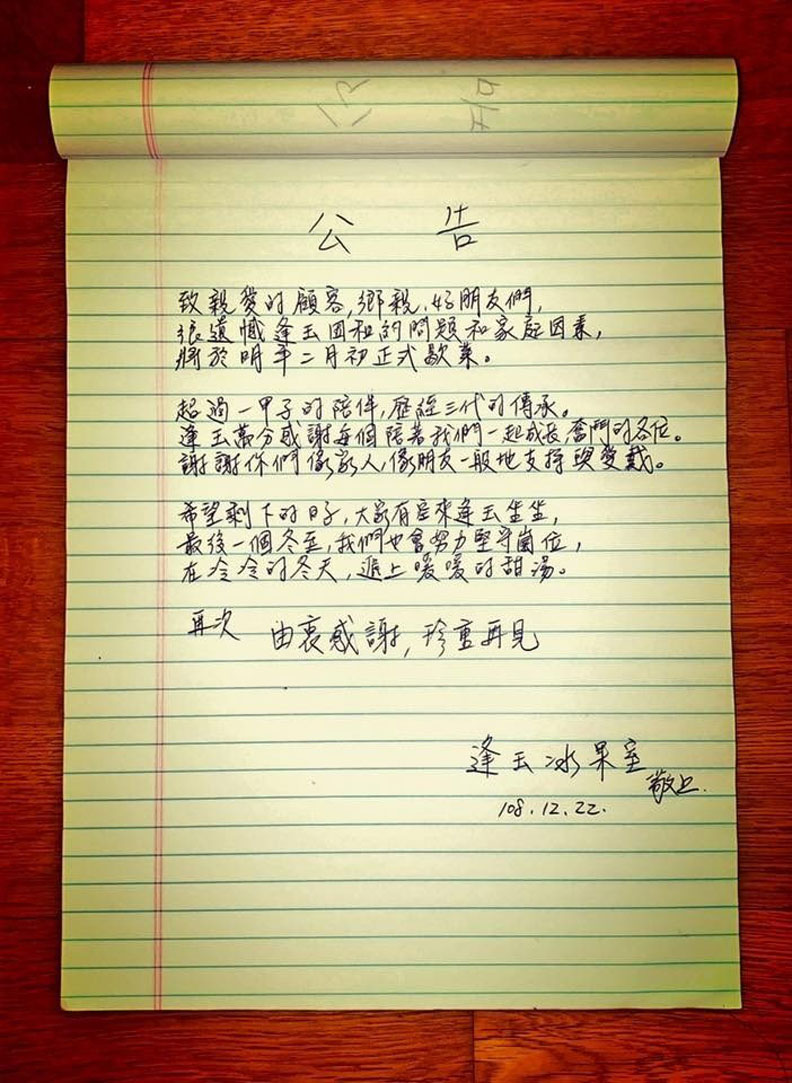 公告
致親愛的顧客,鄉親,好朋友們,
很遺憾逢玉因租約問題和家庭因素,
將於明年二月初正式歇業。
超過一甲子的陪伴,歷經三代的傳承。
逢玉萬分感謝每個陪著我們一起成長,奮鬥的各位。
謝謝你們像家人,像朋友一般地支持與愛戴。
希望剩下的日子,大家有空來逢玉坐坐,
最後一個冬至,我們也會努力堅守崗位,
在冷冷的冬天,遞上暖暖的甜湯。
再次 由衷感謝,珍重再見
逢玉冰果室
敬上.
108.12.22.